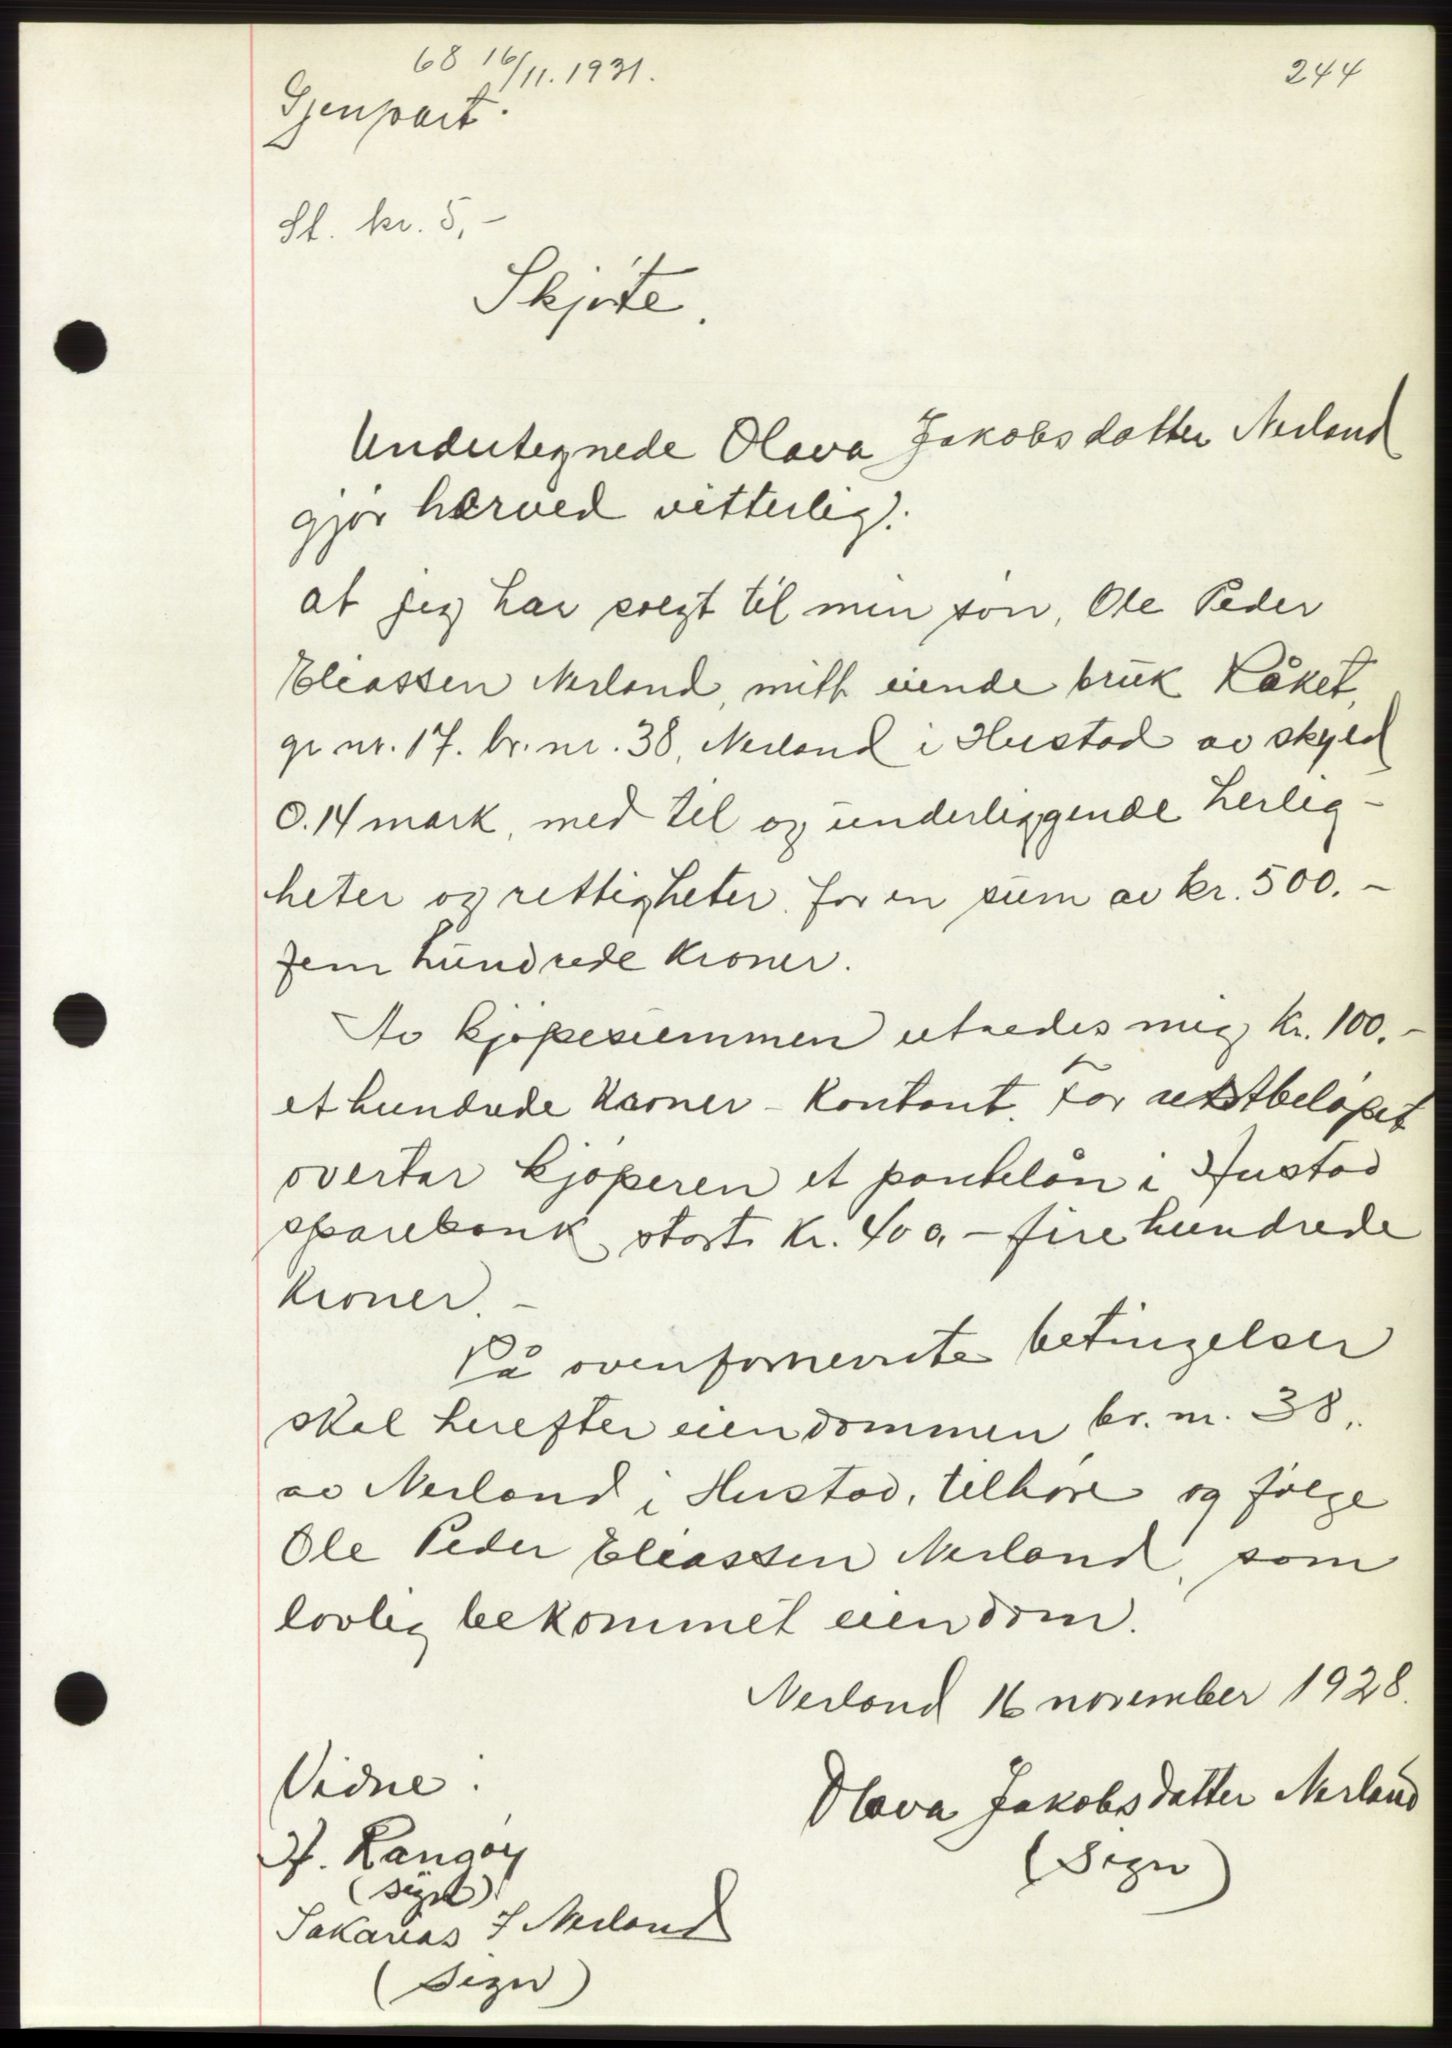 68 16/11. 1931.
244
Gjenpart.
St. kr. 5,-
Skjøte.
Undertegnede Olava Jakobsdatter Nerland
gjør herved vitterlig:
at jeg har solgt til min søn, Ole Peder
Eliassen Nerland, mitt eiende bruk Råket,
gr nr. 17. br. nr. 38, Nerland i Hustad av skyld
0.14 mark, med til og underliggende herlig-
heter og rettigheter for en sum av kr. 500.-
fem hundrede kroner.
Av kjøpesummen utredes mig kr. 100.-
et hundrede kroner - kontant. For restbeløpet
overtar kjøperen et pantelån i Hustad
sparebank, stort kr. 400,- fire hundrede
kroner. -
På ovenfornevnte betingelser
skal herefter eiendommen br. nr. 38,
av Nerland i Hustad, tilhøre og følge
Ole Peder Eliassen Nerland, som
lovlig bekommet eiendom.
Nerland 16 november 1928.
Vidne:
Olava Jakobsdatter Nerland
(Sign)
H. Rangøy
(sign)
Sakarias J Nerland
(Sign)